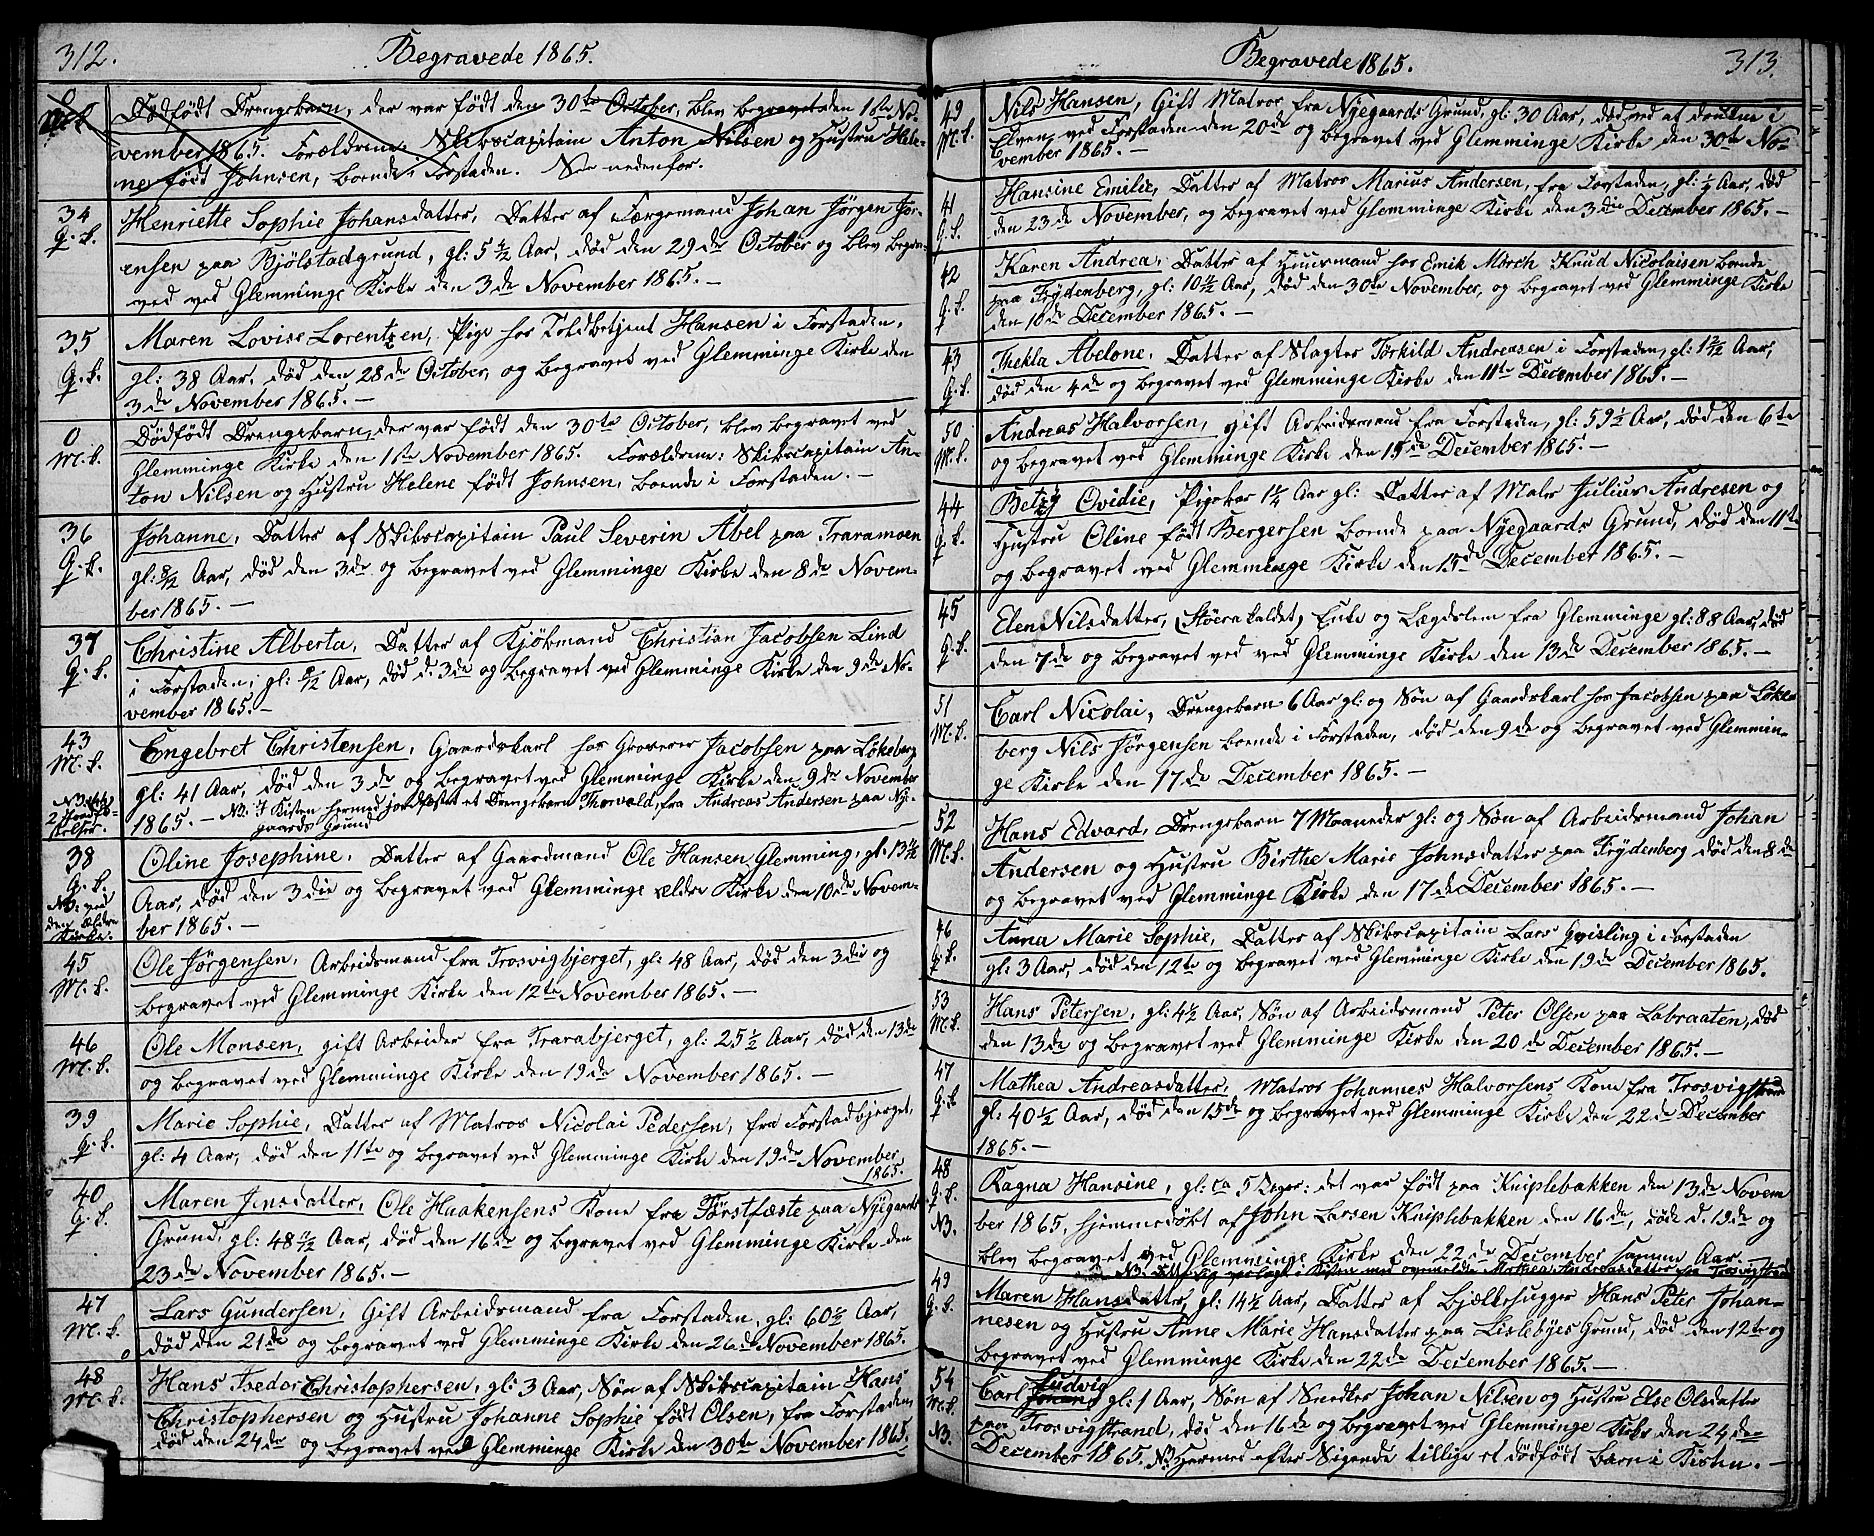 312.
Begravede 1865.
0
M.k.
Dødfødt Drengebarn, der var født den 30te October, blev begravet den 1ste No-
vember 1865. Forældrene Skibscapitain Anton Nilsen og Hustru Hele-
ne født Johnsen, boende i Forstaden. Se nedenfor.
34
Q.k.
Henriette Sophie Johansdatter, Datter af Færgemand Johan Jörgen Jör-
ensen paa Bjölstadgrund, gl: 5 1/2 Aar, död den 29de October og blev begra-
ved ved Glemminge Kirke den 3de November 1865. —
35
Q.k.
Maren Lovise Lorentzen, Pige hos Toldbetjent Hansen i Forstaden,
gl: 38 Aar, död den 28de October, og begravet ved Glemminge Kirke den
3de November 1865. —
0
M.k.
Dødfödt Drengebarn, der var födt den 30te October, blev begravet ved
Glemminge Kirke den 1ste November 1865. Forældrene: Skibscapitain An-
ton Nilsen og Hustru Helene födt Johnsen, boende i Forstaden. —
36
Q.k.
Johanne, Datter af Skibscapitain Paul Severin Abel paa Traramoen
gl: 8/12 Aar, död den 3de og begravet ved Glemminge Kirke den 8de Novem-
ber 1865. —
37
Q.k.
Christine Alberta, Datter af Kjöbmand Christian Jacobsen Lind
i Forstaden, gl: /12 Aar, död d. 3de og begravet ved Glemminge Kirke den 9de No-
vember 1865. —
43
M.k.
Engebret Christensen, Gaardskarl hos Jacobsen paa Lökeberg
gl: 41 Aar, död den 3de og begravet ved Glemminge Kirke den 9de November
1865. — NB: I Kisten hermed jordfæstet et Drengebarn Thorvald, fra Andreas Andersen paa Ny-
gaards Grund
38
Q.k.
NB: ved
den ældre
Kirke.
Oline Josephine, Datter af Gaardmand Ole Hansen Glemming, gl: 13 1/2
Aar, död den 3die og begravet ved Glemminge ældre Kirke den 10de Novem-
ber 1865. —
45
M.k.
Ole Jörgensen, Arbeidsmand fra Trosvigbjerget, gl: 48 Aar, död den 3die og
begravet ved Glemminge Kirke den 12te November 1865. —
46
M.k.
Ole Monsen, gift Arbeider fra Trarabjerget, gl: 25 1/2 Aar, död den 13de
og begravet ved Glemminge Kirke den 19de November 1865. —
39
Q.k.
Marie Sophie, Datter af Matros Nicolai Pedersen, fra Forstadbjerget,
gl: 4 Aar, död den 11te og begravet ved Glemminge Kirke den 19de November
1865.
40
Q.k.
Maren Jensdatter, Ole Haakensens Kone fra Törstfæste paa Nyegaards
Grund, gl: 48 Aar, död den 16de og begravet ved Glemminge Kirke den
23de November 1865. —
47
M.k.
Lars Gundersen, Gift Arbeidsmand fra Forstaden, gl: 60 1/2 Aar,
död den 21de og begravet ved Glemminge Kirke den 26de November 1865.
48
M.k.
Hans Isedor Christophersen, gl: 3 Aar, Sön af Skibscapitain Hans
Christophersen og Hustru Johanne Sophie födt Olsen, fra Forstaden,
död den 24de og begravet ved Glemminge Kirke den 30te November 1865.
Begravede 1865.
313.
49
M.k.
Nils Hansen, Gift Matros fra Nyegaards Grund, gl: 30 Aar, död ved at drukne i
Elven ved Forstaden den 20de og begravet ved Glemminge Kirke den 30te No-
vember 1865. —
41
Q.k.
Hansine Emilie, Datter af Matros Marius Andersen, fra Forstaden, gl: Aar, död
den 23de November, og begravet ved Glemminge Kirke den 3die December 1865. —
42
Q.k.
Karen Andrea, Datter af Huusmand hos Emik Mörch Knud Nicolaisen boende
paa Frydenberg, gl: 10 1/2 Aar, död den 30te November, og begravet ved Glemminge Kirke
den 10de December 1865. —
43
Q.k.
Thekla Abelone, Datter af Slagter Törkild Andreasen i Forstaden, gl: 1 2/12 Aar,
död den 4de og begravet ved Glemminge Kirke den 11te December 1865. —
50
M.k.
Andreas Halvorsen, gift Arbeidsmand fra Forstaden, gl: 59 1/2 Aar, död den 6te
og begravet ved Glemminge Kirke den 15de December 1865. —
44
Q.k.
Betzy Ovidie, Pigebar 1 1/2 Aar gl: Datter af Maler Julius Andresen og
Hustru Oline födt Bergersen boende paa Nyegaards Grund, död den 11te
og begravet ved Glemminge Kirke den 15de December 1865. —
45
Q.k.
Elen Nilsdatter, (Störa kaldet) Enke og Lægdslem fra Glemminge gl: 88 Aar, död
den 7de og begravet ved ved Glemminge Kirke den 13de December 1865. —
51
M.k.
Carl Nicolai, Drengebarn 6 Aar gl: og Sön af Gaardskarl hos Jacobsen paa Löke-
berg Nils Jörgensen boende i Forstaden, död den 9de og begravet ved Glemmin-
ge Kirke den 17de December 1865. —
52
M.k.
Hans Edvard, Drengebarn 7 Maaneder gl: og Sön af Arbeidsmand Johan
Andersen og Hustru Birthe Marie Johnsdatter paa Frydenberg död den 8de
og begravet ved Glemminge Kirke den 17de December 1865. —
46
Q.k.
Anna Marie Sophie, Datter af Skibscapitain Lars Qvisling i Forstaden
gl: 3 Aar, död den 12te og begravet ved Glemminge Kirke den 19de December 1865.
53
M.k.
Hans Petersen, gl: 4 1/2 Aar, Sön af Arbeidsmand Peter Olsen paa Labraaten, död
den 13de og begravet ved Glemminge Kirke den 20de December 1865. —
47
Q.k.
Mathea Andreasdatter, Matros Johannes Halvorsens Kone fra Trosvigstrand
gl: 40 1/2 Aar, död den 15de og begravet ved Glemminge Kirke den 22de December
1865. —
48
Q.k.
NB.
Ragna Hansine, gl: ca 5 Uger: det var födt paa Kniplebakken den 13de Novem
ber 1865, hjemmedöbt af John Larsen Kniplebakken den 16de, döde d. 19de og
blev begravet ved Glemminge Kirke den 22de December samme Aar. —
NB. i Kisten med ovenmeldte Mathea Andreasdatter fra Trosvigstrand
49
Q.k.
Maren Hansdatter, gl: 14 1/2 Aar, Datter af Bjælkehugger Hans Peter Johan-
nesen og Hustru Anne Marie Hansdatter paa Lislebyes Grund, död den 12te og
begravet ved Glemminge Kirke den 22de December 1865. —
54
M.k.
NB.
Ludvig
Carl Johan, gl: 1 Aar, Sön af Snedker Johan Nilsen og Hustru Else Olsdatter
paa Trosvigstrand, död den 16de og begravet ved Glemminge Kirke den 24de
December 1865. NB Hermed efter Sigende tillige et dödfödt Barn i Kisten. —